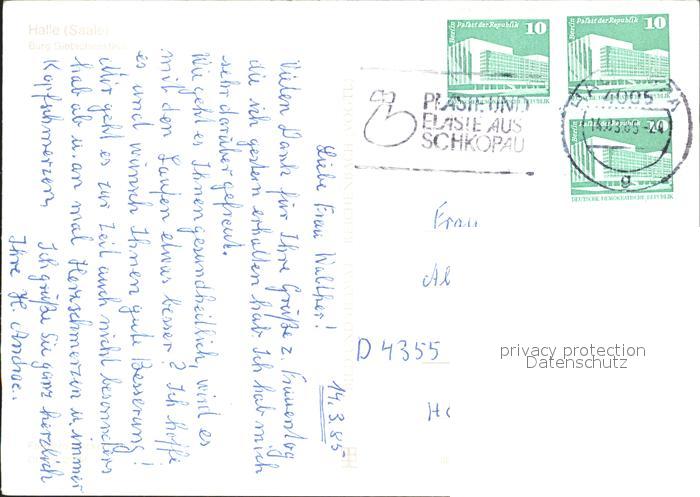 Halle (Saale)
Burg Giebichenstein
14.3.85
Liebe Frau Walther!
Vielen Dank für Ihre Grüße z. Frauentag
die ich gestern erhalten hab. Ich hab mich
sehr darüber gefreut.
Wie geht es Ihnen gesundheitlich, wird es
mit den Laufen etwas besser? Ich hoffe
es und wünsch Ihnen gute Besserung!
Mir geht es zur Zeit auch nicht besonders
hab ab u. an mal Herzschmerzen u. immer
Kopfschmerzen. Ich grüße Sie ganz herzlich
Ihre H. Andrae.
Berlin Palast der Republik 10
Berlin Palast der Republik 10
DEUTSCHE DEMOKRATISCHE REPUBLIK
PLASTE UND
ELASTE AUS
SCHKOPAU
4005
14.03.85-20
g
Frau
D 4355
privacy protection
Datenschutz